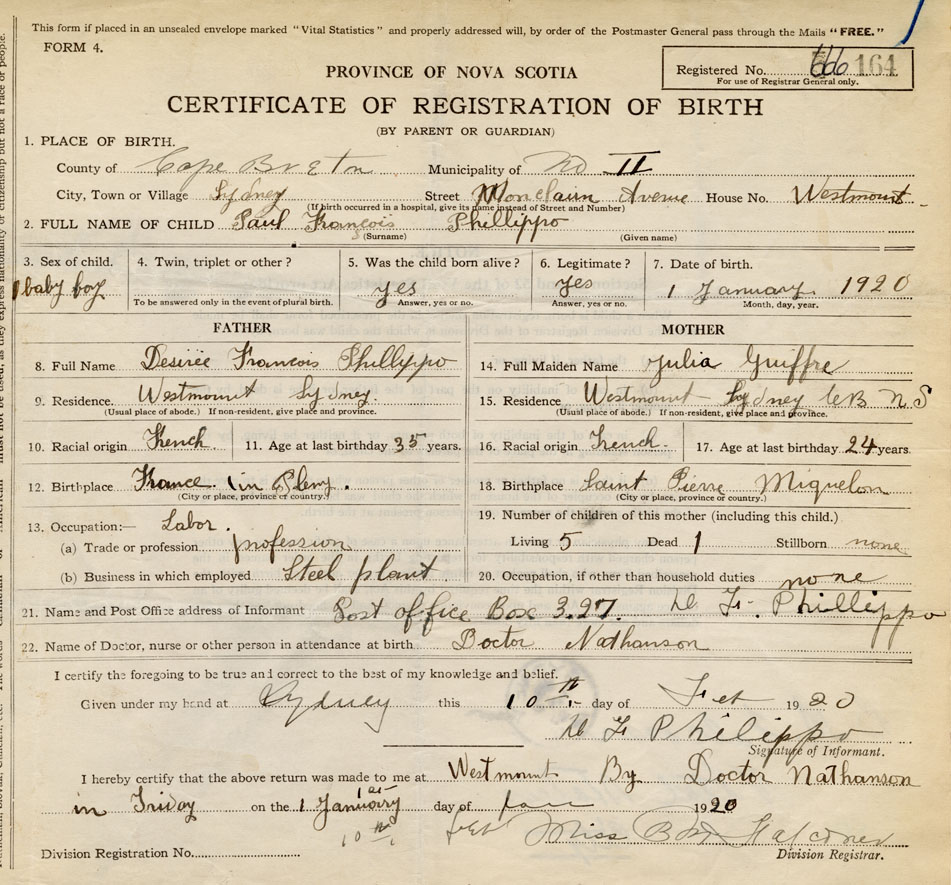 This form if placed in an unsealed envelope marked "Vital Statistics" and properly addressed will, by order of the Postmaster General pass through the Mails "FREE."
FORM 4.
Registered No. 164
For use of Registrar General only.
PROVINCE OF NOVA SCOTIA
CERTIFICATE OF REGISTRATION OF BIRTH
(BY PARENT OR GUARDIAN)
1. PLACE OF BIRTH.
County of Cape Breton Municipality of No 11
City, Town or Village Sydney Street Avenue House No. Westmount
(If birth occurred in a hospital, give its name instead of Street and Number)
2. FULL NAME OF CHILD Paul Francois Phillippo
(Surname) (Given name)
3. Sex of child. 4. Twin, triplet or other? 5. Was the child born alive? 6. Legitimate? 7. Date of birth.
baby boy yes yes 1 January 1920
To be answered only in the event of plural birth. Answer, yes or no. Answer, yes or no. Month, day, year.
FATHER MOTHER
8. Full Name Desirée Francois Phillippo 14. Full Maiden Name Julia Guiffre
9. Residence. Westmount Sydney. 15. Residence Westmount Sydney CB N S
(Usual place of abode.) If non-resident, give place and province. (Usual place of abode.) If non-resident, give place and province.
10. Racial origin French 11. Age at last birthday 35 years. 16. Racial origin French 17. Age at last birthday 24 years.
12. Birthplace France. in 18. Birthplace Saint Pierre Miquelon
(City or place, province or country.) (City or place, province or country.)
13. Occupation:— Labor. 19. Number of children of this mother (including this child.)
(a) Trade or profession profession Living 5 Dead 1 Stillborn none
(b) Business in which employed Steel plant 20. Occupation, if other than household duties none
21. Name and Post Office address of Informant Post office Box 327. F. Phillippo
22. Name of Doctor, nurse or other person in attendance at birth Doctor Nathanson
I certify the foregoing to be true and correct to the best of my knowledge and belief.
Given under my hand at Sydney this 10th day of Feb 1920
F Philippo
Signature of Informant.
I hereby certify that the above return was made to me at Westmount By Doctor Nathanson
in Friday on the 1 January 1st day of Jan 1920
10th Feb Miss Falconer
Division Registration No. Division Registrar.